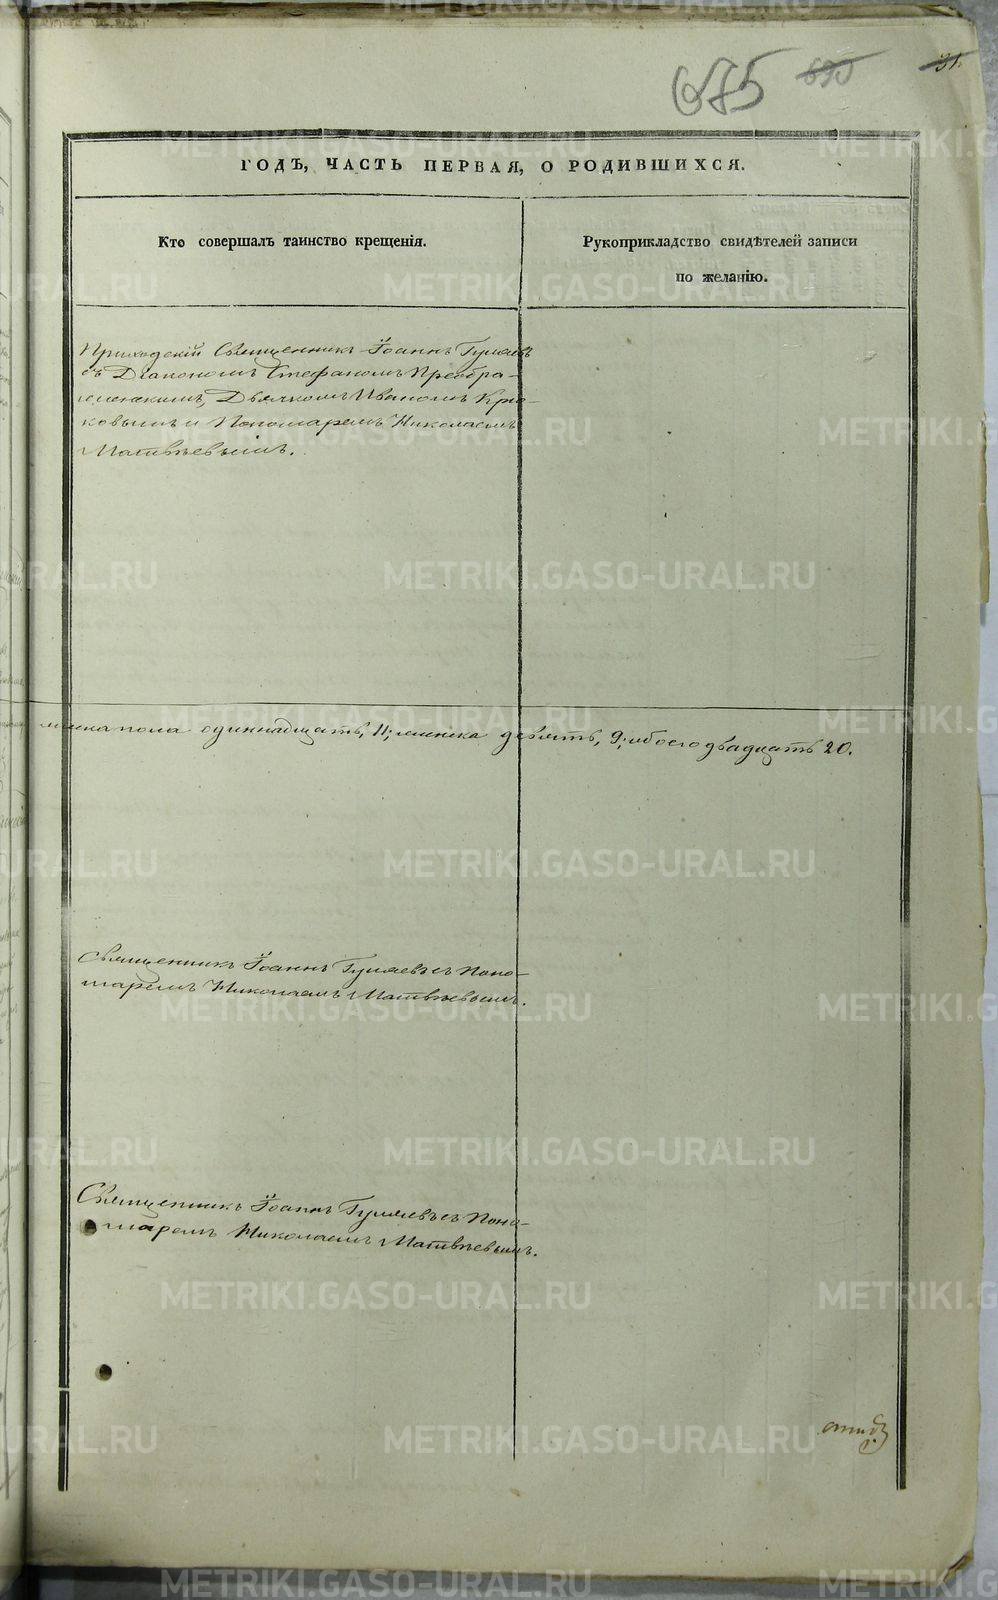 675 695 31.
ГОДЪ, ЧАСТЬ ПЕРВАЯ, О РОДИВШИХСЯ.
Кто совершалъ таинство крещенія.
Рукоприкладство свидѣтелей записи
по желанію.
Приходскій Священникъ Іоаннъ Гуляевъ
съ Діакономъ Стефаномъ Преобра-
женскимъ, Дьячкомъ Иваномъ Крю-
ковымъ и Пономаремъ Николаемъ
Матвѣевымъ.
мужеска пола одиннадцать, 11; женска девять, 9; обоего двадцать 20.
Священникъ Іоаннъ Гуляевъ съ Поно-
маремъ Николаемъ Матвѣевымъ.
Священникъ Іоаннъ Гуляевъ съ Поно-
маремъ Николаемъ Матвѣевымъ.
METRIKI.GASO-URAL.RU